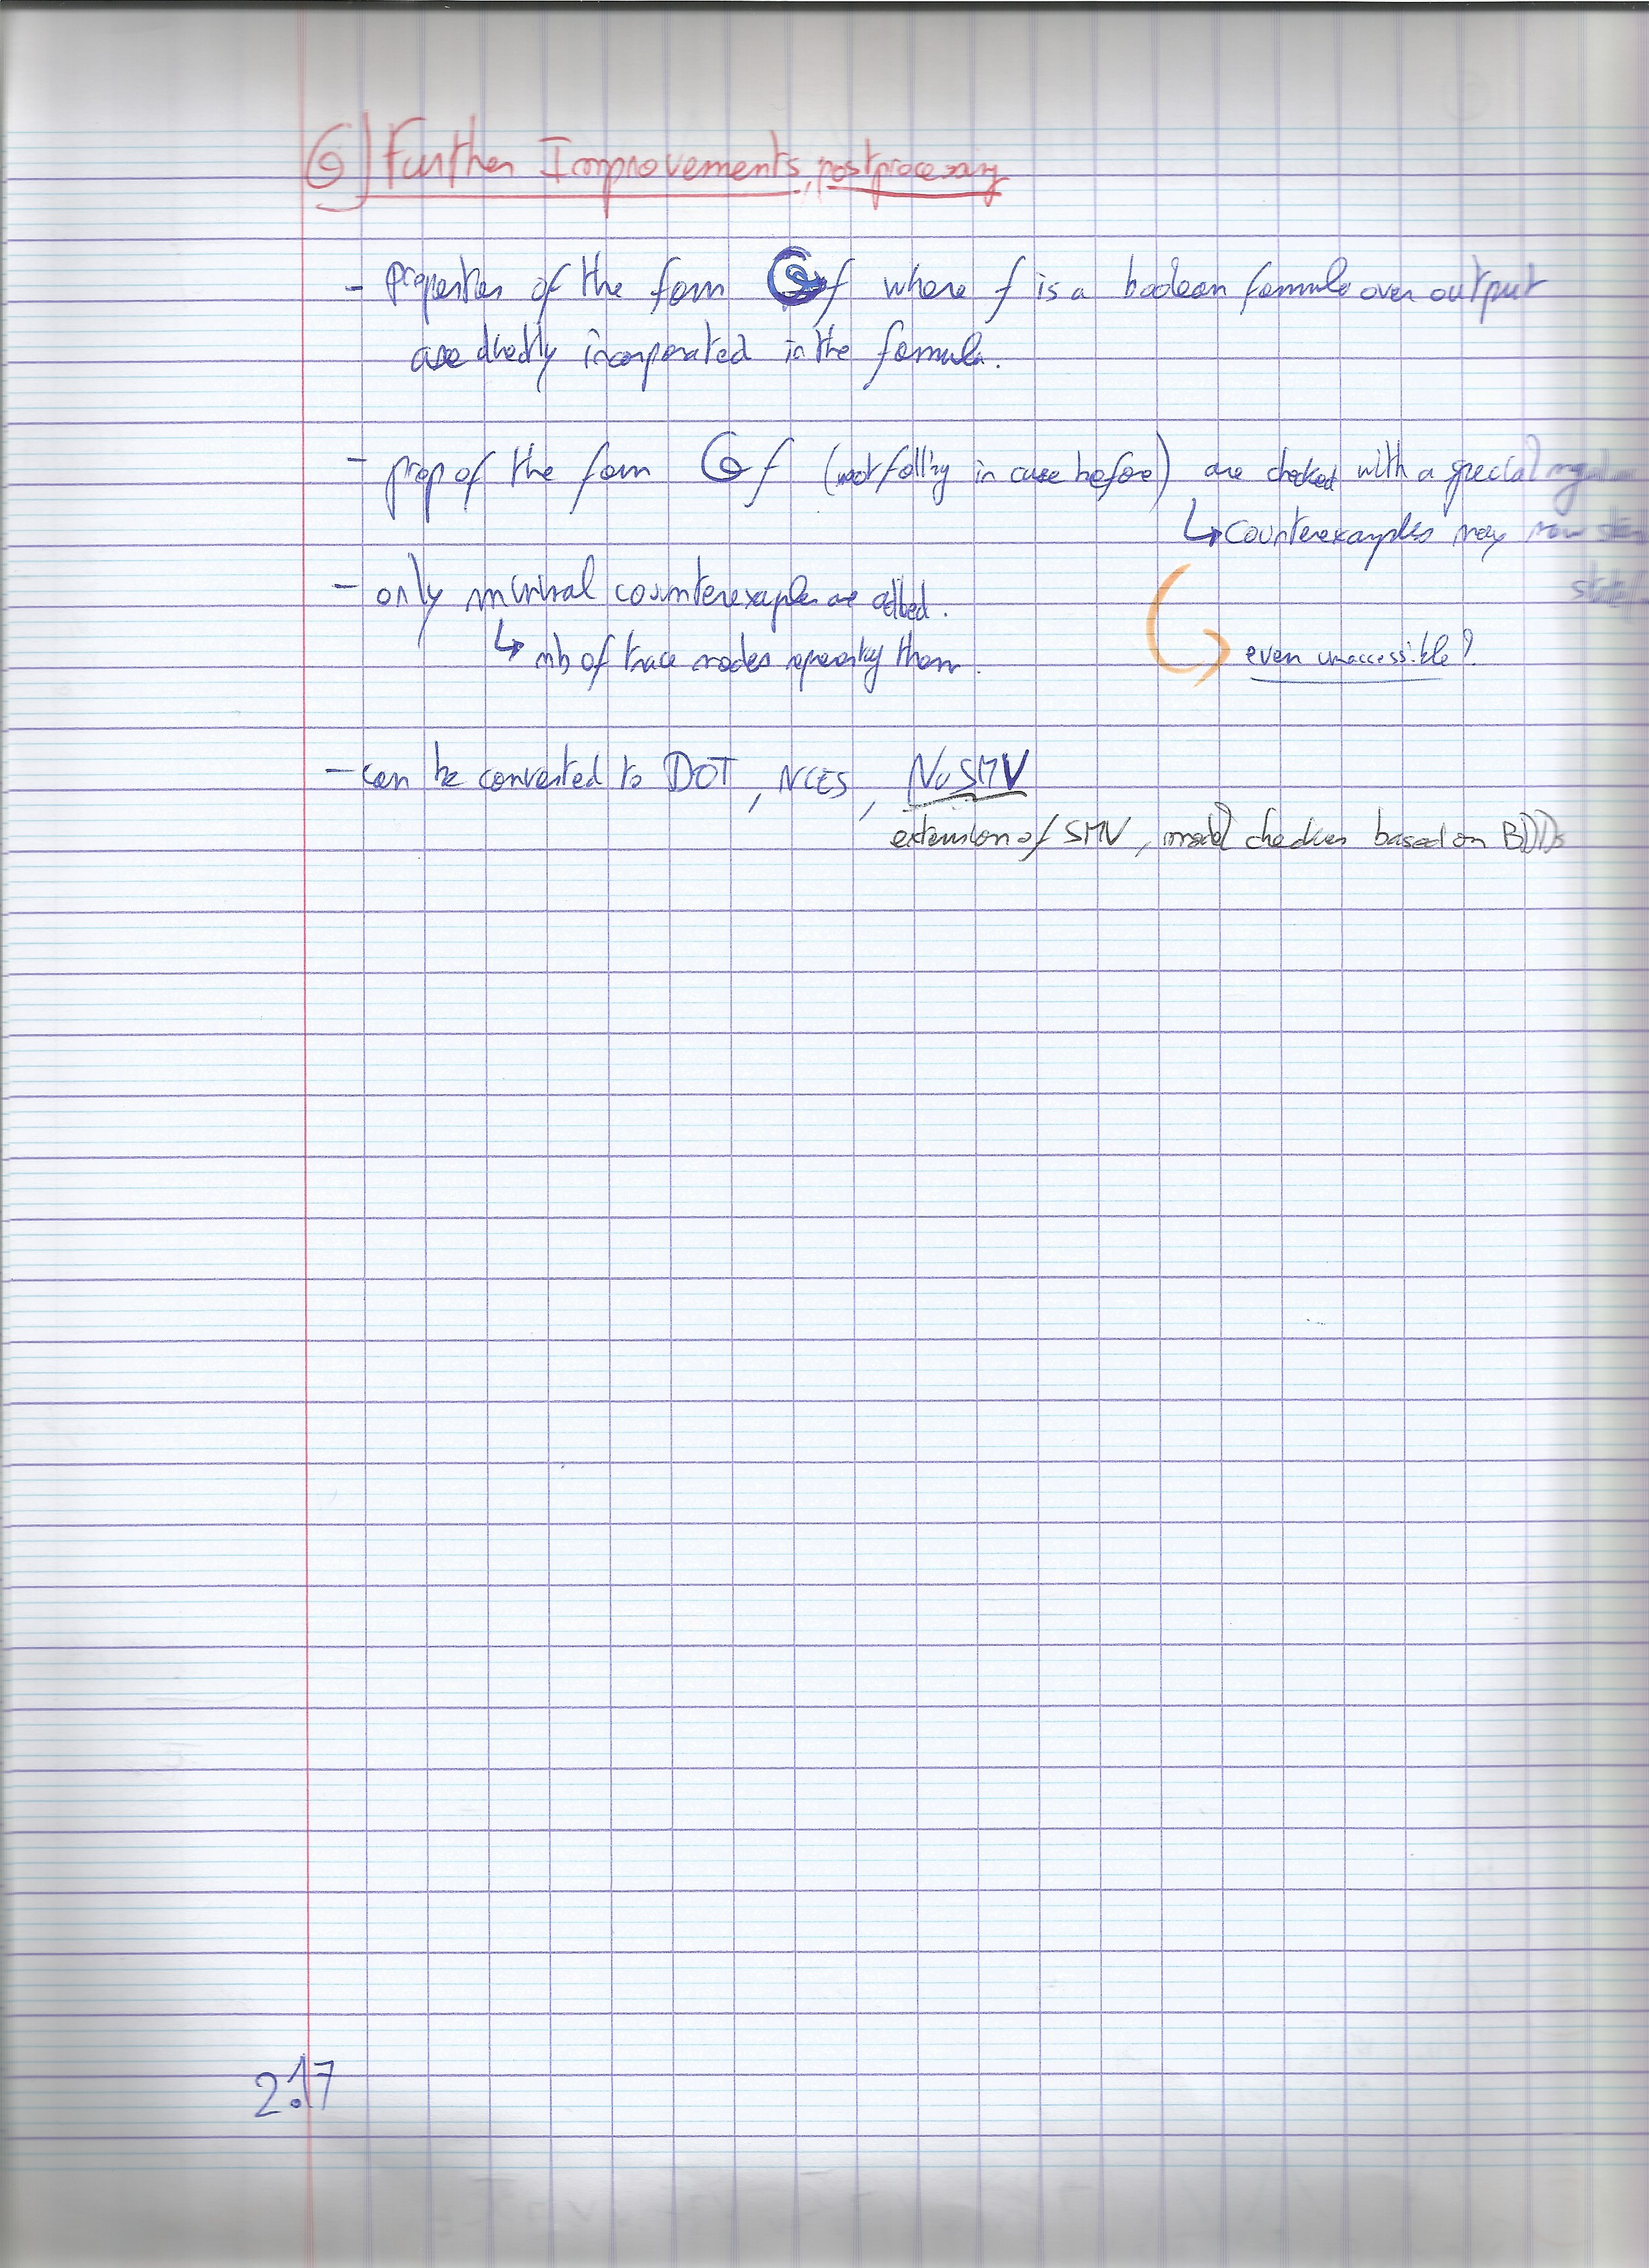 6) Further Improvements, postprocessing
- Properties of the form G f where f is a boolean formula over output
are directly incorporated in the formula.
- prop of the form G f (not falling in case before) are checked with a special
↳ counterexamples may now
- only minimal counterexamples are added.
↳ nb of trace nodes representing them.
even unaccessible?
- can be converted to DOT, NCES, NuSMV
extension of SMV, model checker based on BDDs
2.17